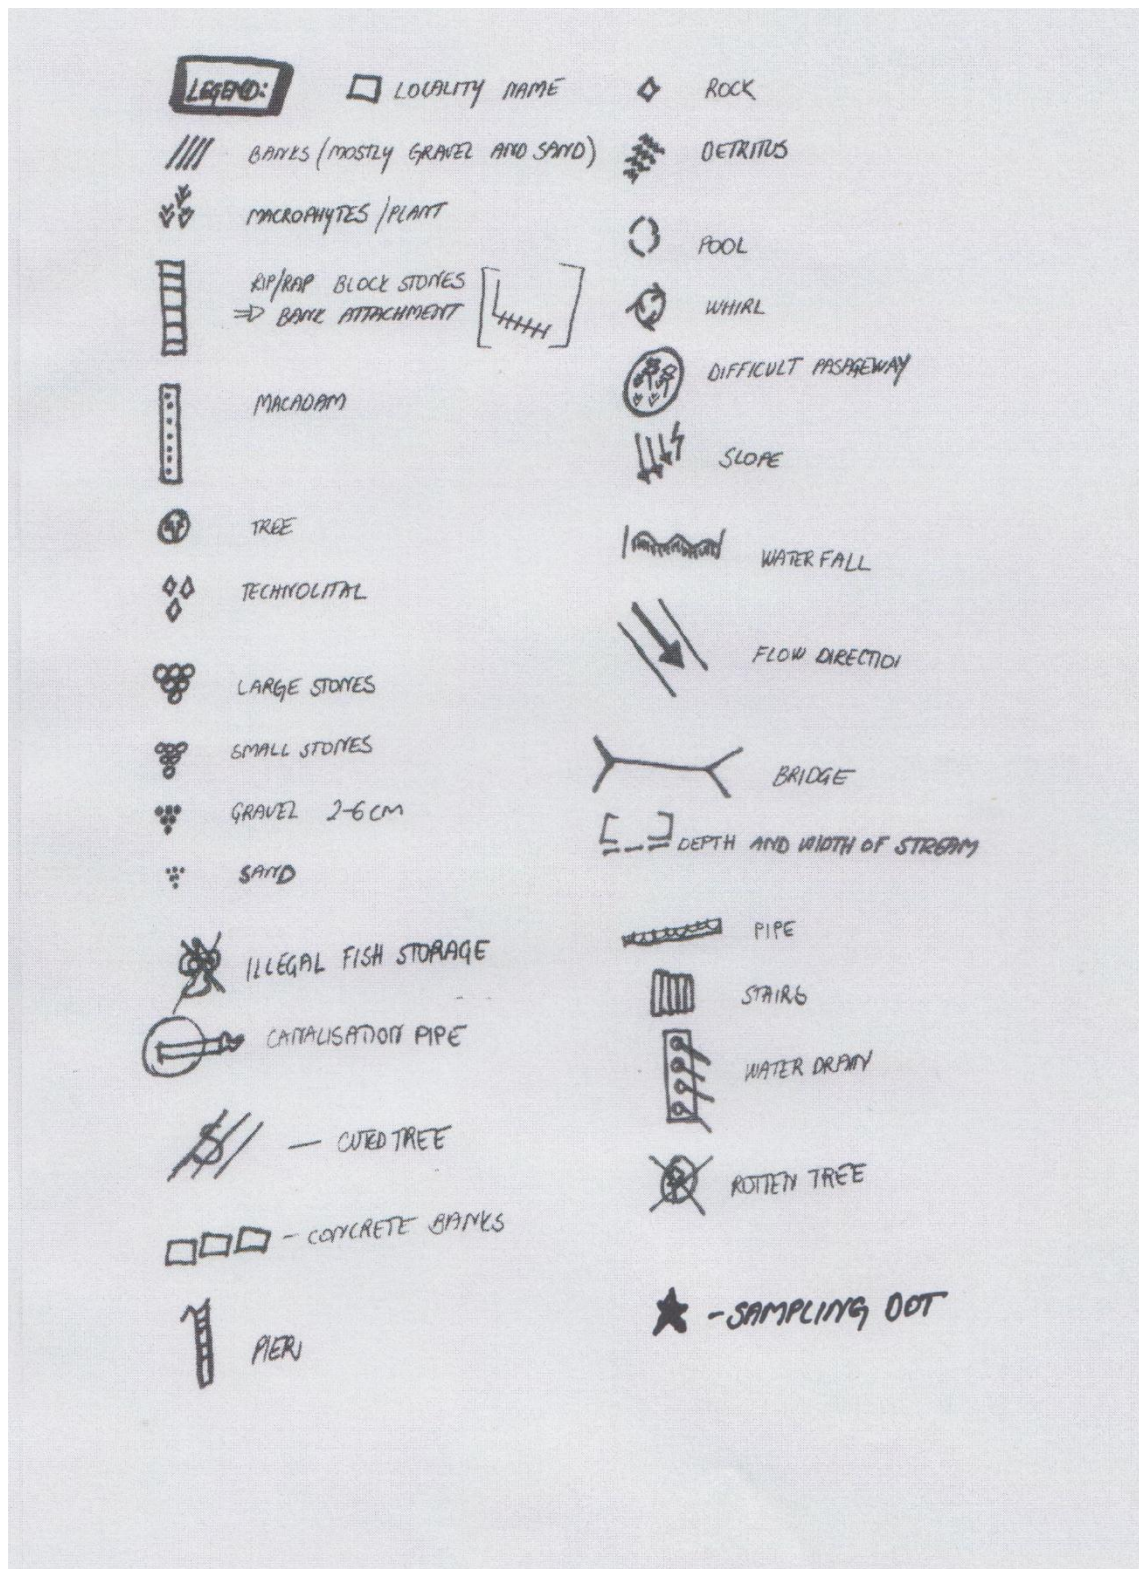 LEGEND:
LOCALITY NAME
BANKS (MOSTLY GRAVEL AND SAND)
MACROPHYTES/PLANT
RIP/RAP BLOCK STONES
⇒ BANK ATTACHMENT
MACADAM
TREE
TECHNOLITAL
LARGE STONES
SMALL STONES
GRAVEL 2-6 CM
SAND
ILLEGAL FISH STORAGE
CANALISATION PIPE
- CUTED TREE
- CONCRETE BANKS
PIER
ROCK
DETRITUS
POOL
WHIRL
DIFFICULT PASAGEWAY
SLOPE
WATER FALL
FLOW DIRECTION
BRIDGE
DEPTH AND WIDTH OF STREAM
PIPE
STAIRS
WATER DRAIN
ROTTEN TREE
- SAMPLING DOT